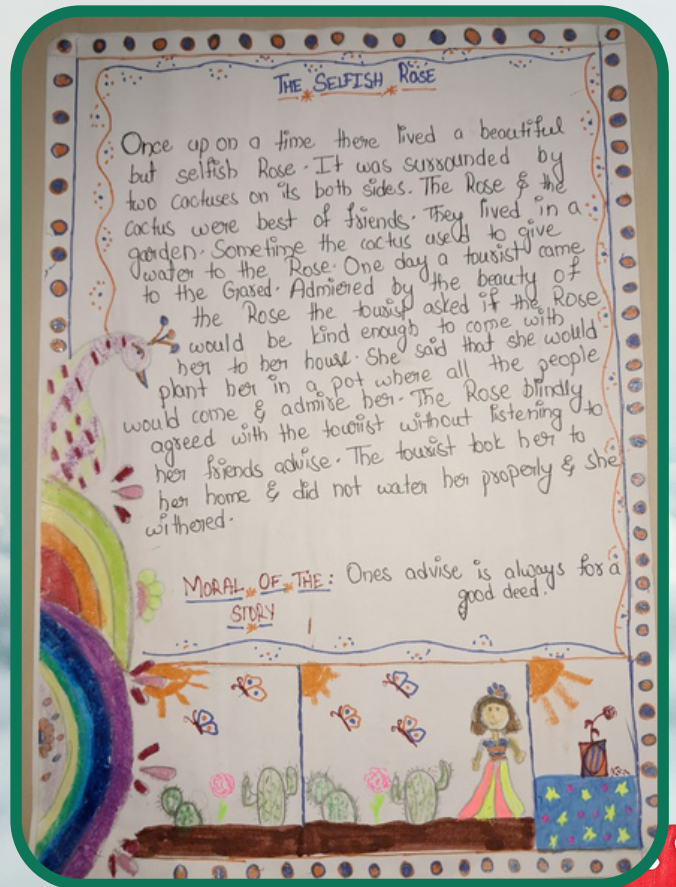 THE SELFISH ROSE
Once upon a time there lived a beautiful
but selfish Rose. It was surrounded by
two cactuses on its both sides. The Rose & the
cactus were best of friends. They lived in a
garden. Sometime the cactus used to give
water to the Rose. One day a tourist came
to the Grased. Admiered by the beauty of
the Rose the tourist asked if the Rose
would be kind enough to come with
her to her house. She said that she would
plant her in a pot where all the people
would come & admire her. The Rose blindly
agreed with the tourist without listening to
her friends advise. The tourist took her to
her home & did not water her properly & she
withered.
MORAL OF THE: Ones advise is always for a
good deed.
STORY